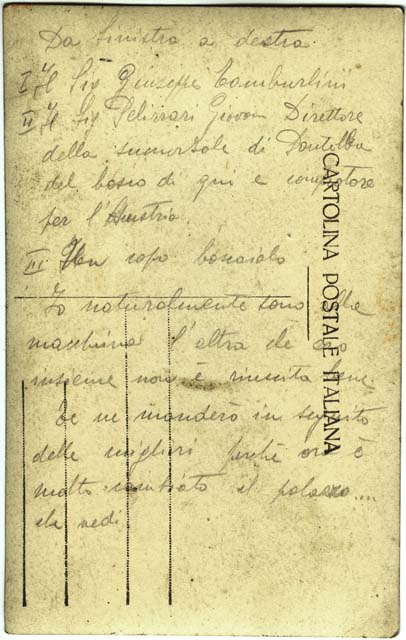 Da sinistra a destra.
I Il Sig Giuseppe Tamburlini
II Il Sig Pelizzari Giovan Direttore
della succursale di
del bosco di qui e compratore
per l'Austria
III Un capo boscaiolo
Io naturalmente sono alla
macchina l'altra che
insieme non è riuscita bene
Te ne manderò in seguito
delle migliori perchè ora è
molto cambiato il palazzo....
che vedi
CARTOLINA POSTALE ITALIANA